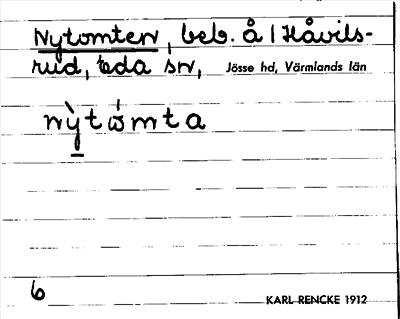 Nytomten, beb. å 1 Håvils-
rud, Eda sn, Jösse hd, Värmlands län
nỳtómta
6 KARL RENCKE 1912